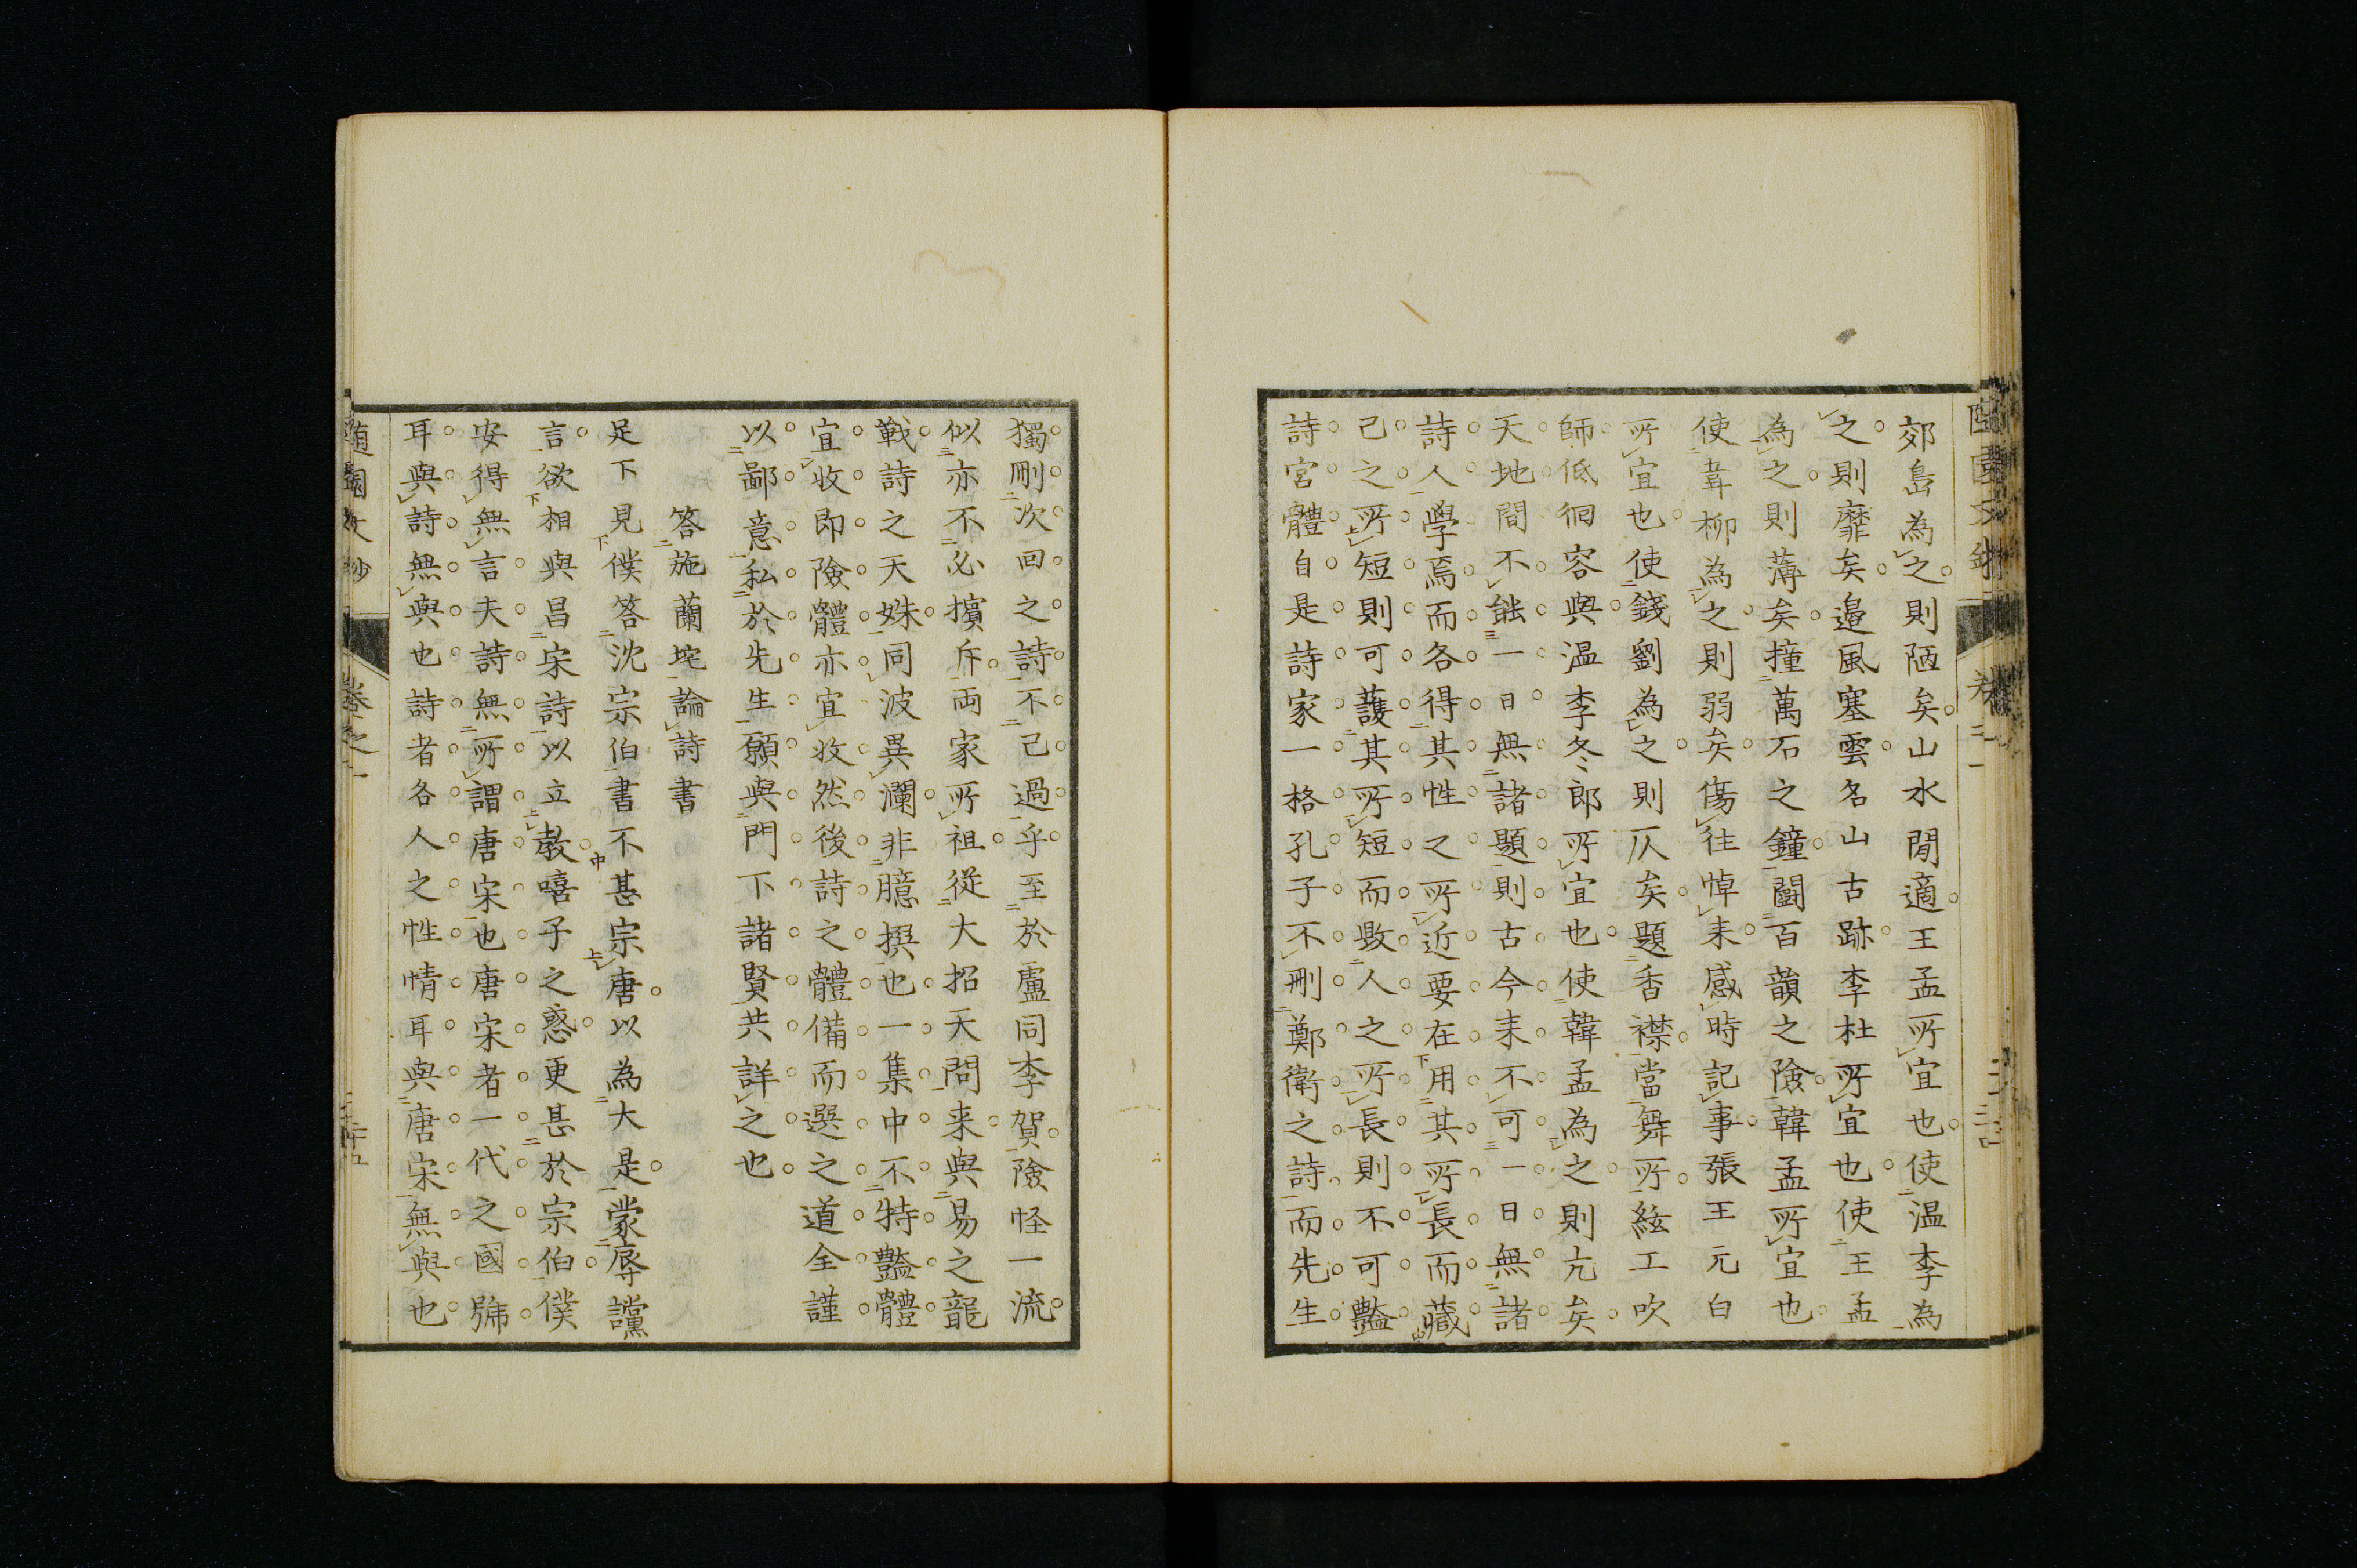 郊島為之則陋矣山水閒適王孟所宜也使温李為
之則靡矣邉風塞雲名山古跡李杜所宜也使王孟
為之則薄矣撞萬石之鐘鬪百韻之險韓孟所宜也
使韋柳為之則弱矣傷往悼来感時記事張王元白
所宜也使錢劉為之則仄矣題香襟當舞所絃工吹
師低徊容與温李冬郎所宜也使韓孟為之則亢矣
天地間不能一日無諸題則古今来不可一日無諸
詩人學焉而各得其性之所近要在用其所長而藏
己之所短則可護其所短而毀人之所長則不可豔
詩宮體自是詩家一格孔子不刪鄭衛之詩而先生
獨刪次回之詩不己過乎至於盧同李賀險怪一流
似亦不必擯斥両家所祖從大招天問来與易之龍
戰詩之天姝同波異瀾非臆撰也一集中不特豔體
宜收即險體亦宜收然後詩之體備而選之道全謹
以鄙意私於先生願與門下諸賢共詳之也
答施蘭垞論詩書
足下見僕答沈宗伯書不甚宗唐以為大是蒙辱讜
言欲相與昌宋詩以立教嘻子之惑更甚於宗伯僕
安得無言夫詩無所謂唐宋也唐宋者一代之國號
耳與詩無與也詩者各人之性情耳與唐宋無與也
隨園文鈔 卷之一